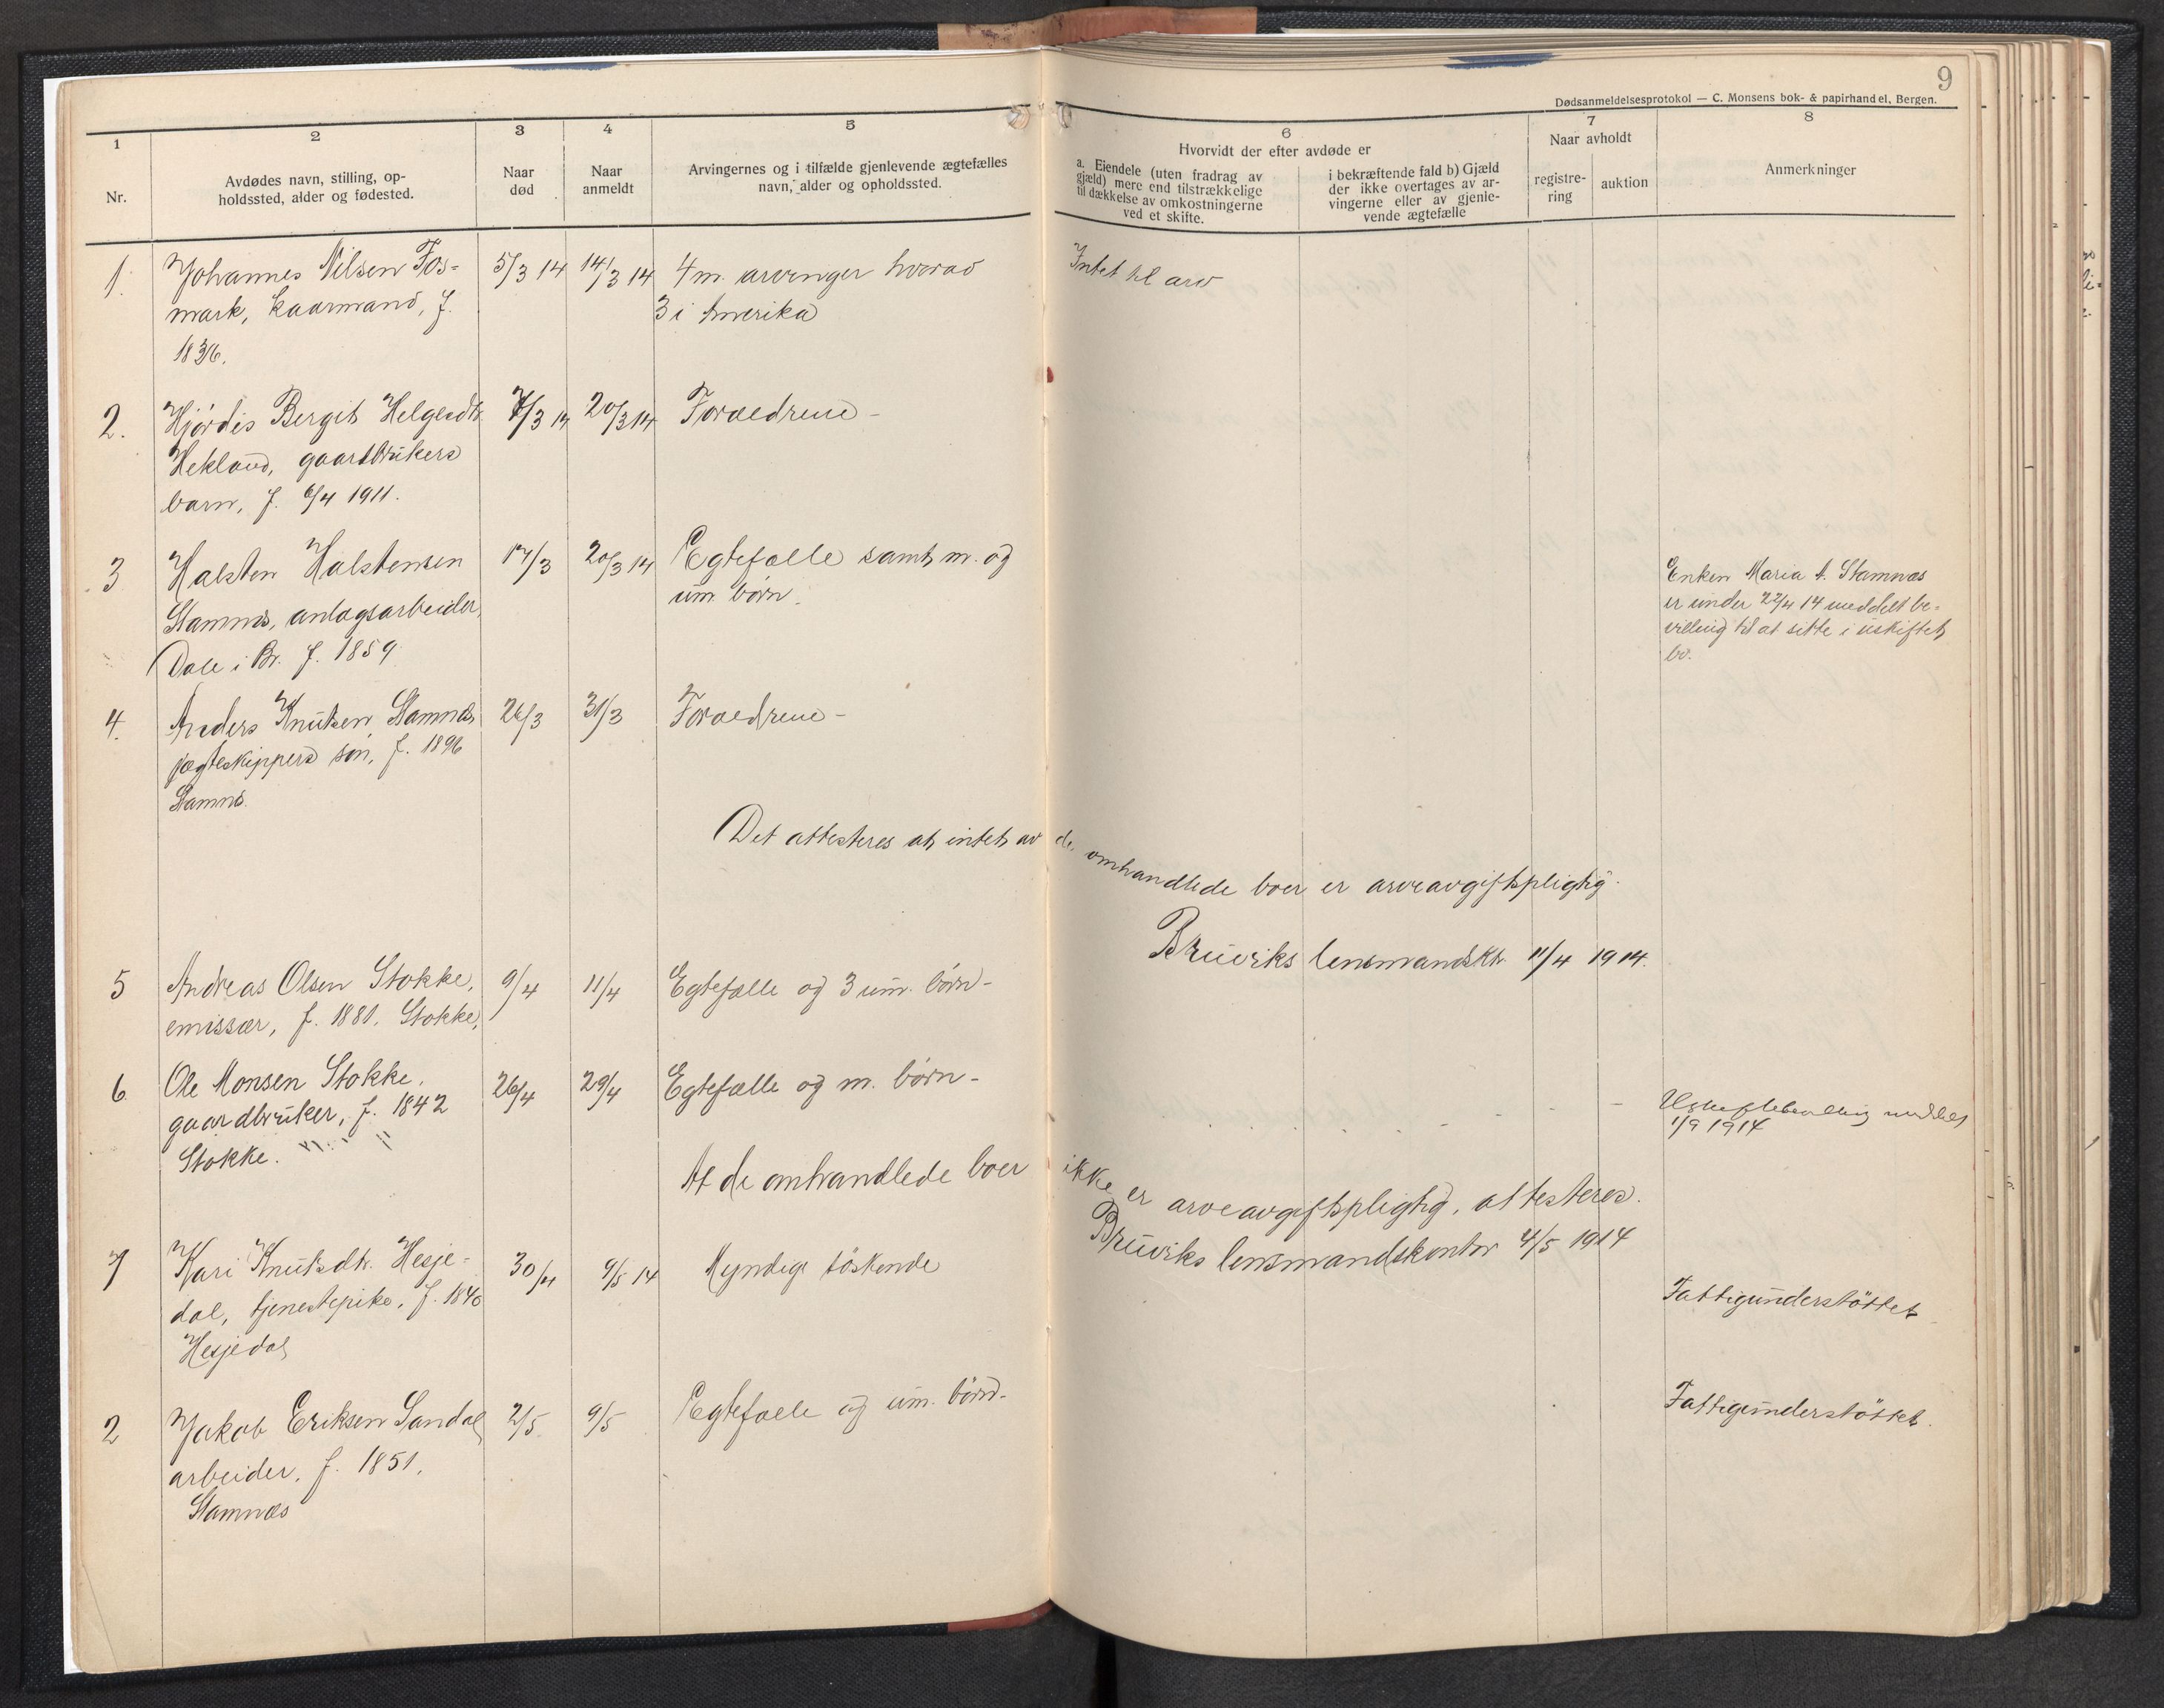 9
Dødsanmeldelsesprotokol — C. Monsens bok- & papirhandel, Bergen.
1
Nr.
2
Avdødes navn, stilling, op-
holdssted, alder og fødested.
3
Naar
død
4
Naar
anmeldt
5
Arvingernes og i tilfælde gjenlevende ægtefælles
navn, alder og opholdssted.
6
Hvorvidt der efter avdøde er
a. Eiendele (uten fradrag av
gjæld) mere end tilstrækkelige
til dækkelse av omkostningerne
ved et skifte.
i bekræftende fald b) Gjæld
der ikke overtages av ar-
vingerne eller av gjenle-
vende ægtefælle
7
Naar avholdt
registre-
ring
auktion
8
Anmerkninger
1. Johannes Nilsen Fos- 5/3 14 14/3 14 4 m. arvinger hvorav Intet til arv
mark, kaarmand, f. 3 i Amerika
1836.
2. Hjördis Bergit Helgesdtr. 7/3 14 20/3 14 Forældrene -
Hekland, gaardbrukers
barn, f. 6/4 1911.
3 Halsten Halstensen 17/3 20/3 14 Egtefælle samt m. og
Stamnes, anlægsarbeider, um. børn.
Dale i Br. f. 1859
Enken Maria A. Stamnæs
er under 22/4 14 meddelt be-
villing til at sitte i uskiftet
bo.
4. Anders Knutsen Stamnæs 26/3 31/3 Forældrene -
jægteskippers søn, f. 1896
Stamnes.
Det attesteres at intet av de omhandlede boer er arveavgiftspligtig.
Bruviks lensmandsktr. 11/4 1914.
5 Andreas Olsen Stokke, 9/4 11/4 Egtefælle og 3 um. børn -
emissær, f. 1881. Stokke,
6 Ole Monsen Stokke, 26/4 29/4 Egtefælle og m. børn -
gaardbruker, f. 1842
Stokke.
Uskiftebevilling meddelt
1/9 1914
At de omhandlede boer ikke er arveavgiftspligtig, attesteres.
Bruviks lensmandskontor 4/5 1914
7 Kari Knutsdtr. Hesje- 30/4 9/5 14 Myndige söskende
dal, tjenestepike, f. 1840
Hesjedal
Fattigunderstöttet
2 Jakob Eriksen Sandal 2/5 9/5 Egtefælle og um. børn - Fattigunderstöttet.
arbeider, f. 1851.
Stamnæs